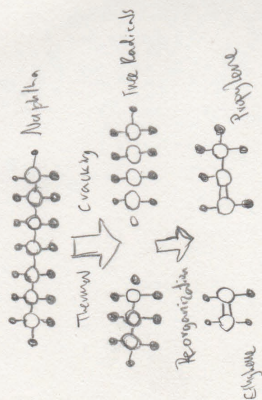 Naphtha
Thermal Cracking
Free Radicals
Reorganization
Ethylene
Propylene